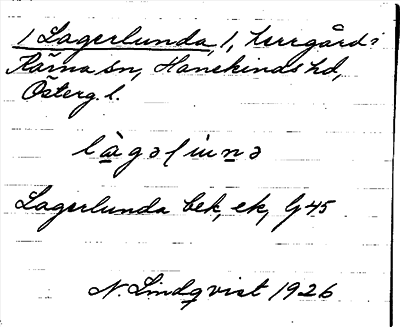 /Lagerlunda/, herrgård i
Kärna sn, Hanekinds hd,
Österg. l.
làgəɭuṉə
Lagerlunda bek, ek, G 45
N. Lindqvist 1926